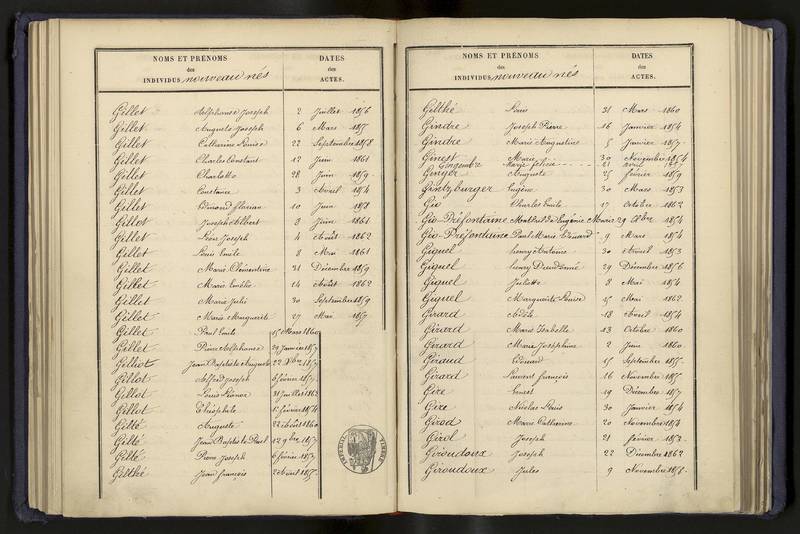 NOMS ET PRÉNOMS
des
INDIVIDUS nouveau nés
DATES
des
ACTES.
Gillet Alphonse Joseph 2 Juillet 1856
Gillet Auguste Joseph 6 Mars
Gillet Catherine Louise 22 Septembre 1858
Gillet Charles Constant 17 Juin 1861
Gillet Charlotte 28 Juin 1859
Gillet Constance 3 Avril 1854
Gillet Florian 10 Juin 1858
Gillot Joseph Albert 8 Juin 1861
Gillet Léon Joseph 4 Août 1862
Gillet Louis Emile 8 Mai 1861
Gillet Marie Clémentine 31 Décembre 1859
Gillet Marie Emilie 14 Août 1862
Gillet Marie Julie 30 Septembre 1859
Gillet Marie Marguerite 27 Mai 1857
Gillet Paul Emile 15 Mars 1860
Gillet Pierre Alphonse 29 Janvier 1857
Gilliot Jean Baptiste Auguste 22
Gillot Alfred Joseph 6 février
Gillot Louis 31 Juillet 1862
Gillot Théophile 1er février 1854
Gilté Auguste 22 Août 1860
Gilté Jean Baptiste Paul 12 9bre 1857
Gilté Pierre Joseph 6 février 1853
Gilthé Jean françois 2 Août
IMPERIAL TIMBRE
NOMS ET PRÉNOMS
des
INDIVIDUS nouveau nés
DATES
des
ACTES.
Gilthé Louis 31 Mars 1860
Gindre Joseph Pierre 16 Janvier 1854
Gindre Marie Augustine 5 Janvier 1857
Ginest Marie 30 Novembre 1854
Gingembre Marie félicie 21 avril 1857
Ginger Auguste 25 février 1859
Gintzburger Eugène 30 Mars 1853
Gio Charles Emile 17 Octobre 1862
Gio-Préfontaine Mathilde Eugénie Marie 29 1854
Gio-Préfontaine Paul Marie Edouard 9 Mars 1854
Giquel henry Antoine 30 Avril 1853
Giquel henry Dieudonné 29 Décembre 1856
Giquel Juliette 8 Mai 1854
Giquel Marguerite Louise 25 Mai 1862
Girard Adèle 18 Avril 1854
Girard Marie Isabelle 13 Octobre 1860
Girard Marie Joséphine 2 Juin 1860
Giraud Edouard 15 Septembre
Girard Laurent françois 16 Novembre
Gire Ernest 19 Décembre 1857
Gire Nicolas Louis 30 Janvier 1854
Girod Marie Catherine 20 Novembre 1854
Girol Joseph 21 février 1853
Giroudoux Joseph 22 Décembre 1862
Giroudoux Jules 9 Novembre 1858